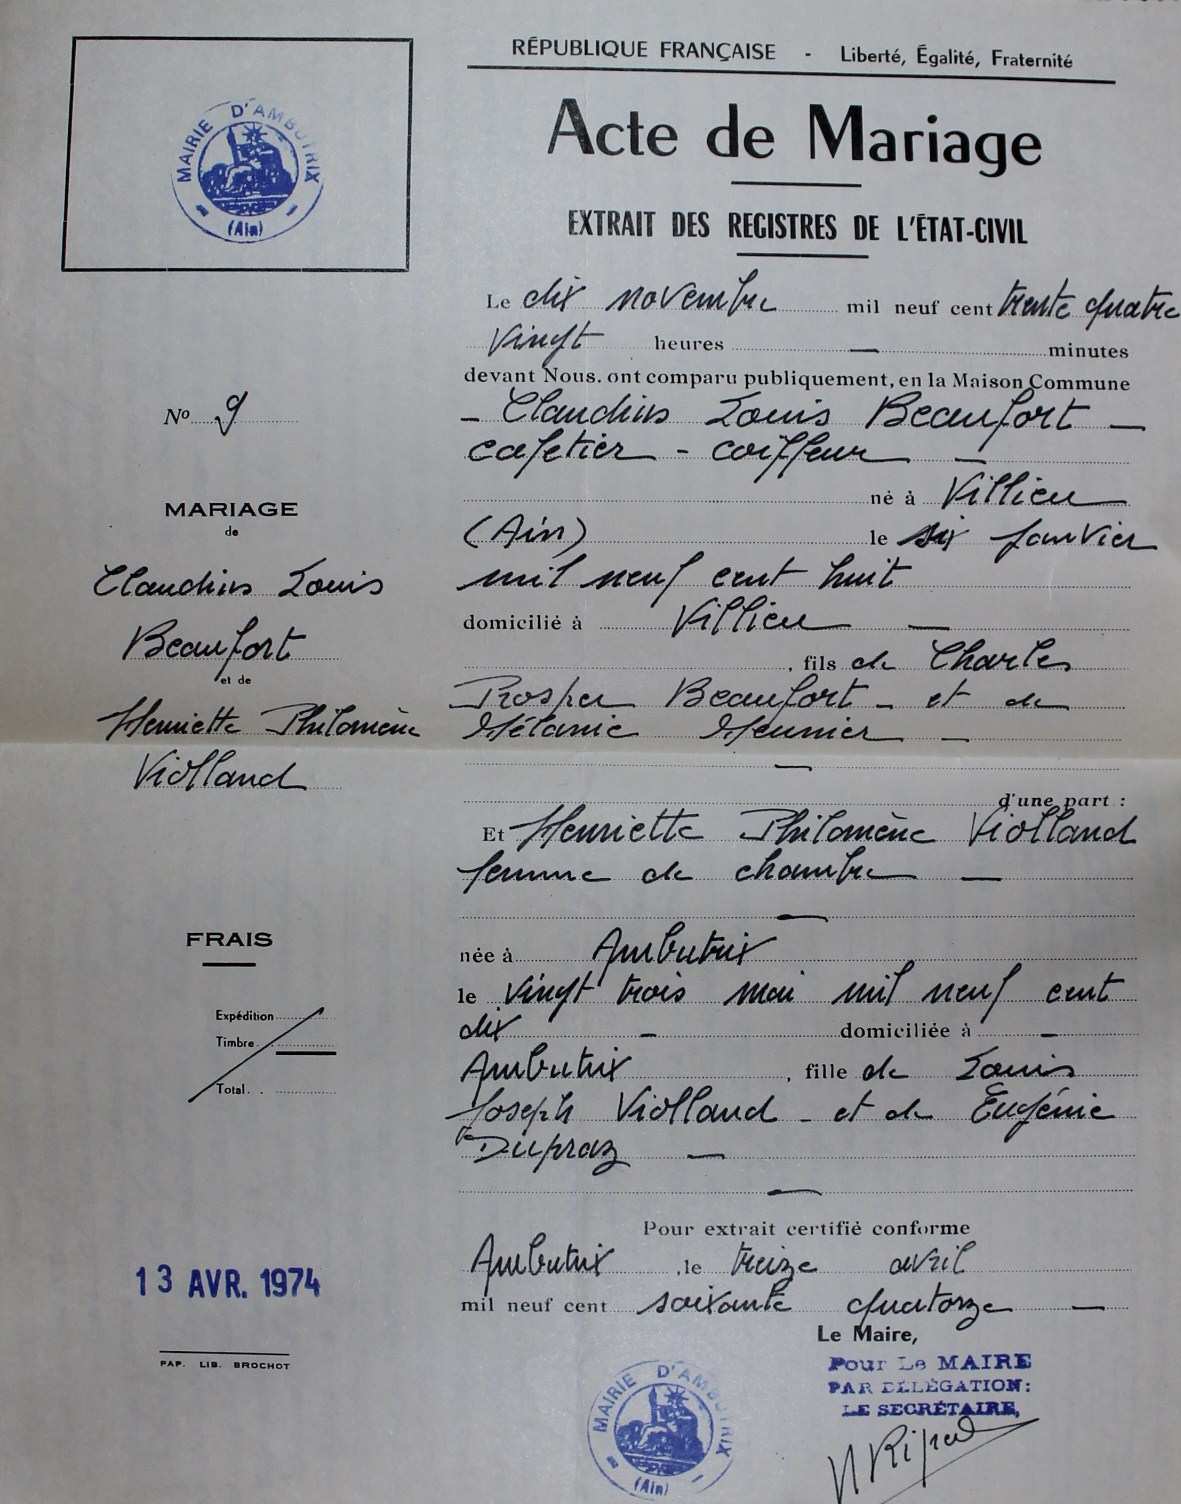 RÉPUBLIQUE FRANÇAISE - Liberté, Égalité, Fraternité
MAIRIE D'AMBUTRIX
(Ain)
Acte de Mariage
EXTRAIT DES REGISTRES DE L'ÉTAT-CIVIL
Le dix novembre mil neuf cent trente quatre
vingt heures — minutes
devant Nous. ont comparu publiquement, en la Maison Commune
N° 9
— Claudius Louis Beaufort —
cafetier - coiffeur —
né à Villieu
(Ain) le six janvier
mil neuf cent huit
domicilié à Villieu —
, fils de Charles
Prosper Beaufort - et de
Mélanie Meunier —
—
d'une part :
MARIAGE
de
Claudius Louis
Beaufort
et de
Henriette Philomène
Violland
Et Henriette Philomène Violland
femme de chambre —
—
née à Ambutrix
le vingt trois mai mil neuf cent
dix — domiciliée à —
Ambutrix , fille de Louis
Joseph Violland - et de Eugénie
Dupraz —
—
FRAIS
Expédition
Timbre
Total
Pour extrait certifié conforme
Ambutrix , le treize avril
mil neuf cent soixante quatorze —
13 AVR. 1974
PAP. LIB. BROCHOT
Le Maire,
Pour Le MAIRE
PAR DÉLÉGATION:
LE SECRÉTAIRE,
MAIRIE D'AMBUTRIX
(Ain)